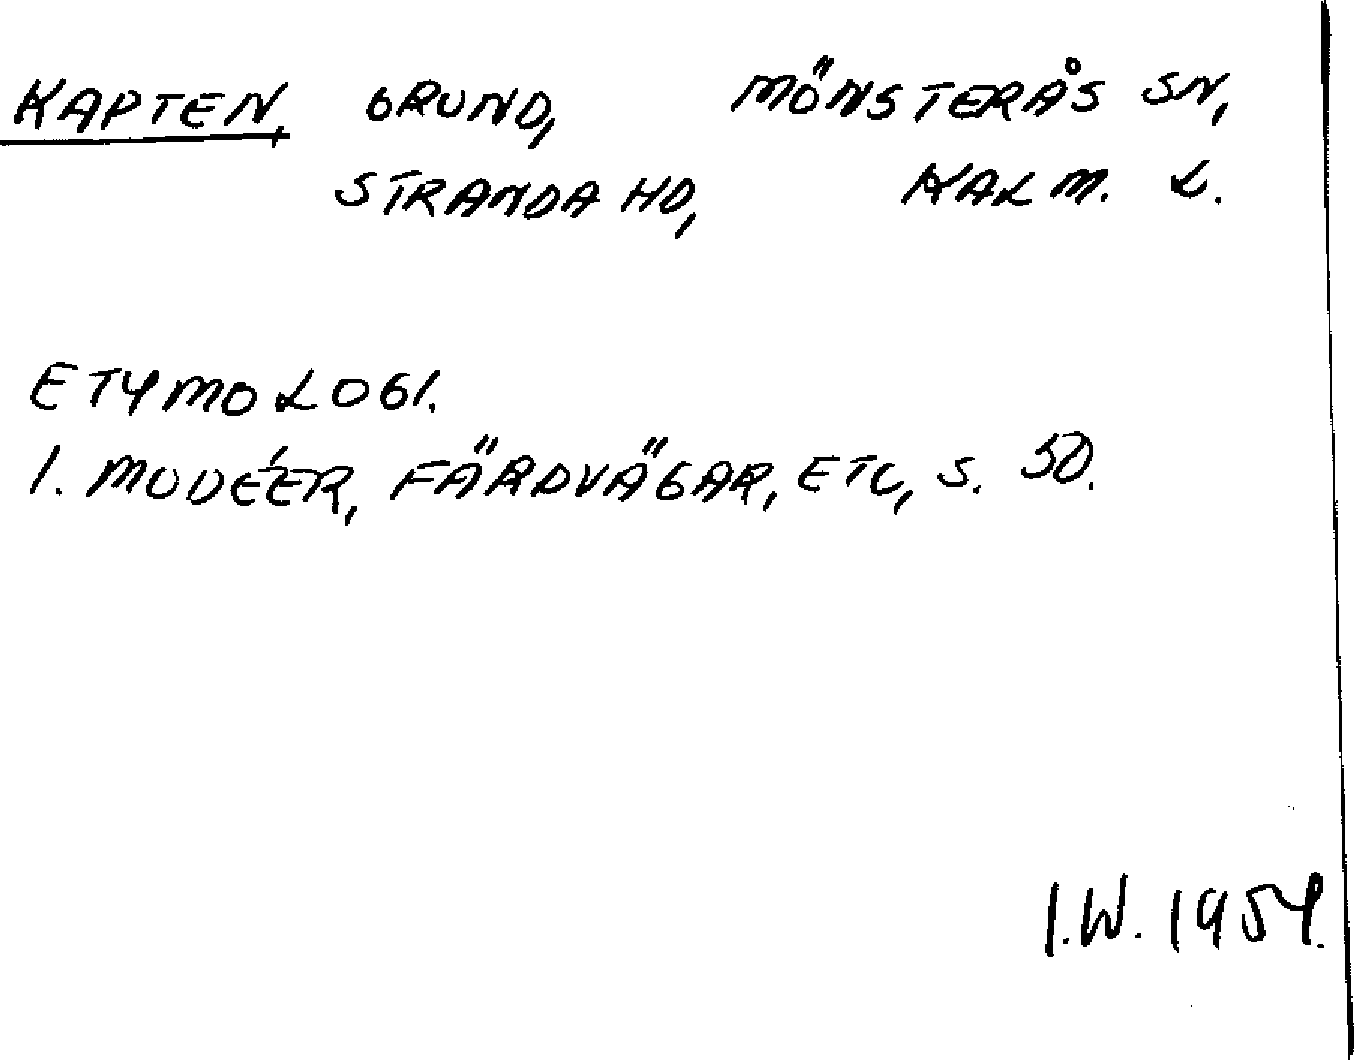 KAPTEN, GRUND, MÖNSTERÅS SN,
STRANDA HD, KALM. L.
ETYMOLOGI.
1. MODÉER, FÄRDVÄGAR, ETC, S. 50.
I.W. 1954.